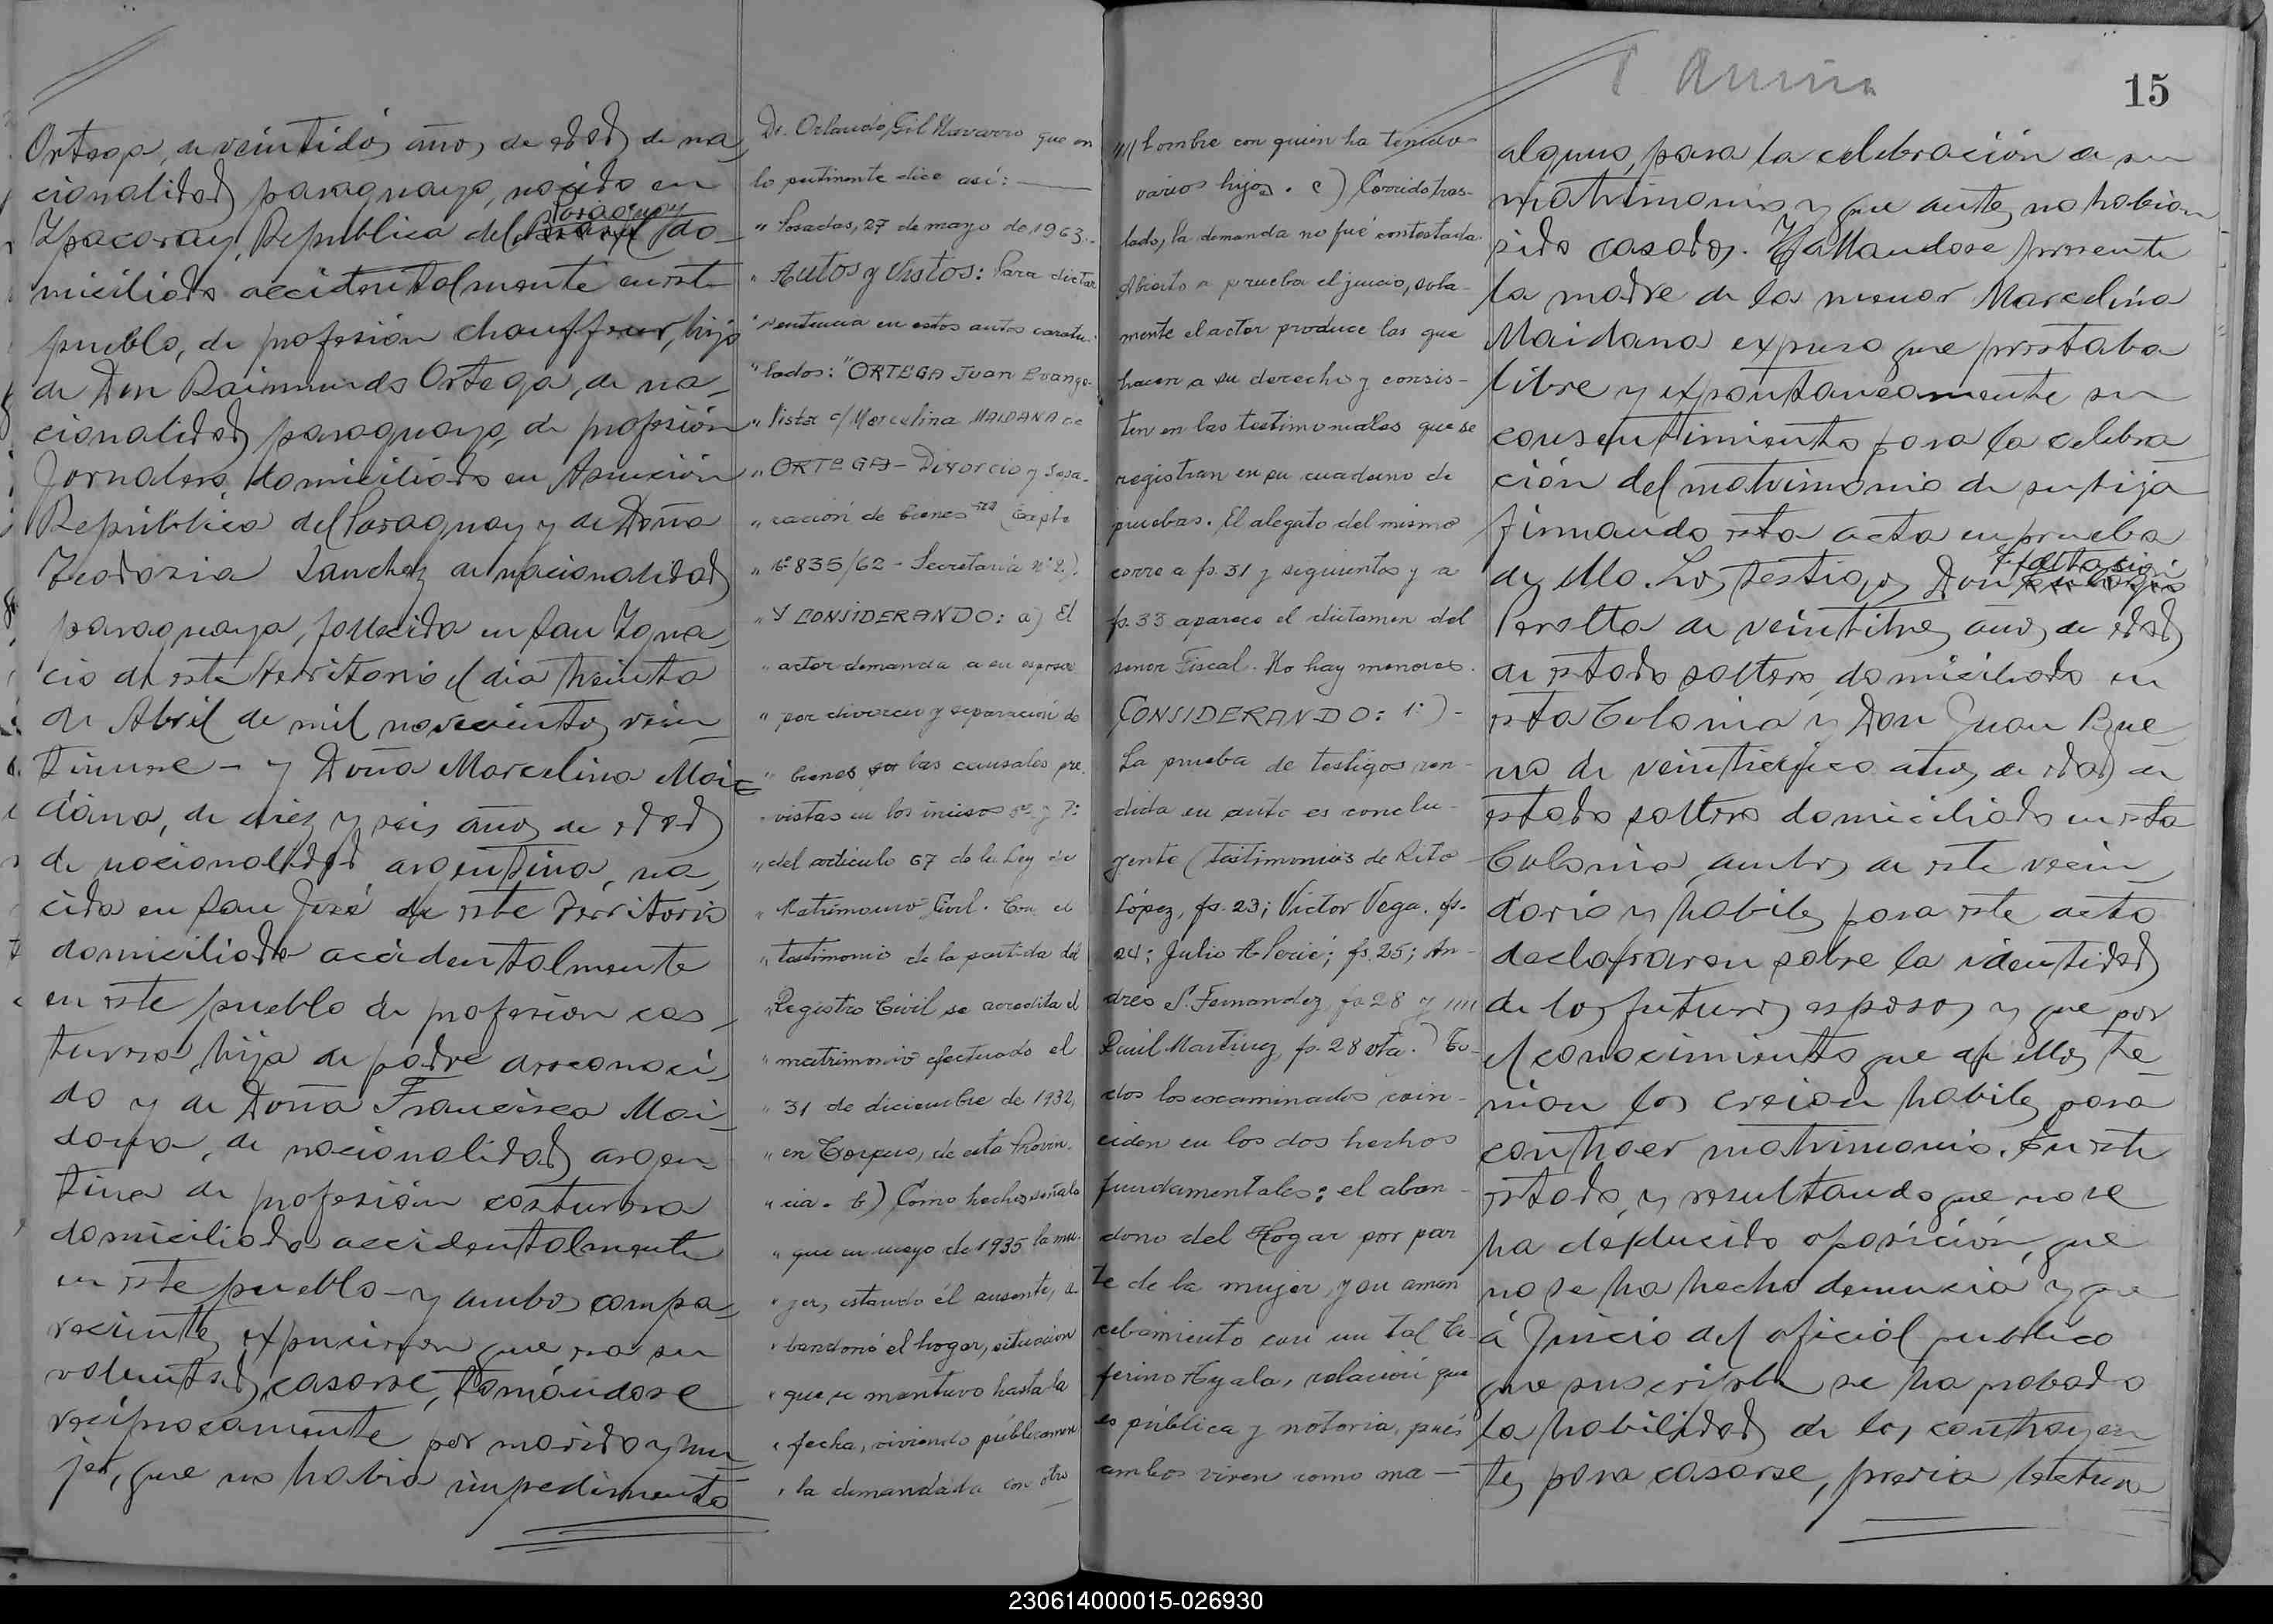 Ortega, de veintidós años de edad de na-
cionalidad paraguaya, nacido en
Ypacaray, República del Paraguay do-
miciliado accidentalmente en este
pueblo, de profesión chauffeur, hijo
de Don Raimundo Ortega, de na-
cionalidad paraguaya, de profesión
Jornalero, domiciliado en Asunción
República del Paraguay y de Doña
Teodosia Sanchez de nacionalidad
paraguaya, fallecida en San Igna-
cio de este territorio el dia treinta
de Abril de mil novecientos vein-
tinueve - y Doña Marcelina Mai-
dana, de diez y seis años de edad
de nacionalidad argentina, na-
cida en San José de este Territorio
domiciliada accidentalmente
en este pueblo de profesión cos-
turera, hija de padre desconoci-
do y de Doña Francisca Mai-
dana, de nacionalidad argen-
tina de profesión costurera
domiciliada accidentalmente
en este pueblo - y ambos compa-
recientes expusieron que era su
voluntad casarse, tomándose
reciprocamente por marido y mu-
jer, que no habia impedimento
Dr. Orlando Gil Navarro que en
lo pertinente dice así:
" Posadas, 27 de mayo de 1963.-
" Autos y Vistos: Para dictar
" sentencia en estos autos caratu-
" lados: "ORTEGA Juan Evange-
" lista c/ Marcelina MAIDANA de
" ORTEGA - Divorcio y Sepa-
" ración de bienes (Expte
" Nº 835/62 - Secretaría nº 2).
" Y CONSIDERANDO: a) El
" actor demanda a su esposa
" por divorcio y separación de
" bienes por las causales pre-
" vistas en los incisos y 7º
" del artículo 67 de la Ley de
" Matrimonio Civil. Con el
" testimonio de la partida del
" Registro Civil se acredita el
" matrimonio efectuado el
" 31 de diciembre de 1932,
" en Corpus, de esta Provin-
" cia. b) Como hechos señala
" que en mayo de 1935 la mu-
" jer, estando él ausente, a-
" bandonó el hogar, situación
" que se mantuvo hasta la
" fecha, viviendo públicamen
" la demandada con otro
//// hombre con quien ha tenido
varios hijos. c) Corrido tras-
lado, la demanda no fué contestada.
Abierto a prueba el juicio, sola-
mente el actor produce las que
hacen a su derecho y consis-
ten en las testimoniales que se
registran en su cuaderno de
pruebas. El alegato del mismo
corre a fs. 31 y siguientes y a
fs. 33 aparece el dictamen del
señor Fiscal. No hay menores.
CONSIDERANDO: 1º) -
La prueba de testigos ren-
dida en auto es conclu-
yente (testimonios de Rito
López, fs. 23; Victor Vega, fs.
24; Julio Alerié; fs. 25; An-
drés S. Fernandez, fs 28 y
Raúl Martinez, fs. 28 vta.) To-
dos los examinados coin-
ciden en los dos hechos
fundamentales: el aban-
dono del Hogar por par
te de la mujer, y su aman
cebamiento con un tal Ce-
ferino Ayala, relación que
es pública y notoria, pues
ambos viven como ma -
15
alguno, para la celebración de su
matrimonio y que antes no habian
sido casados. Hallandose presente
la madre de la menor Marcelina
Maidana expuso que prestaba
libre y expontaneamente su
consentimiento para la celebra
ción del matrimonio de su hija
firmando esta acta en prueba
de ello. Los testigos Don
Peralta de veintitres años de edad
de estado soltero, domiciliado en
esta Colonia y Don Juan Bue-
no de veinticinco años de edad de
estado soltero domiciliado en esta
Colonia ambos de este vecin-
dario y habiles para este acto
declararon sobre la identidad
de los futuros esposos y que por
el conocimiento que de ellos te-
nian los creian habiles para
contraer matrimonio. En este
estado, y resultando que no se
ha deducido oposición, que
no se ha hecho denuncia y que
á Juicio del oficial publico
que suscribe se ha probado
la habilidad de los contrayen-
tes para casarse, previa lectura
230614000015-026930